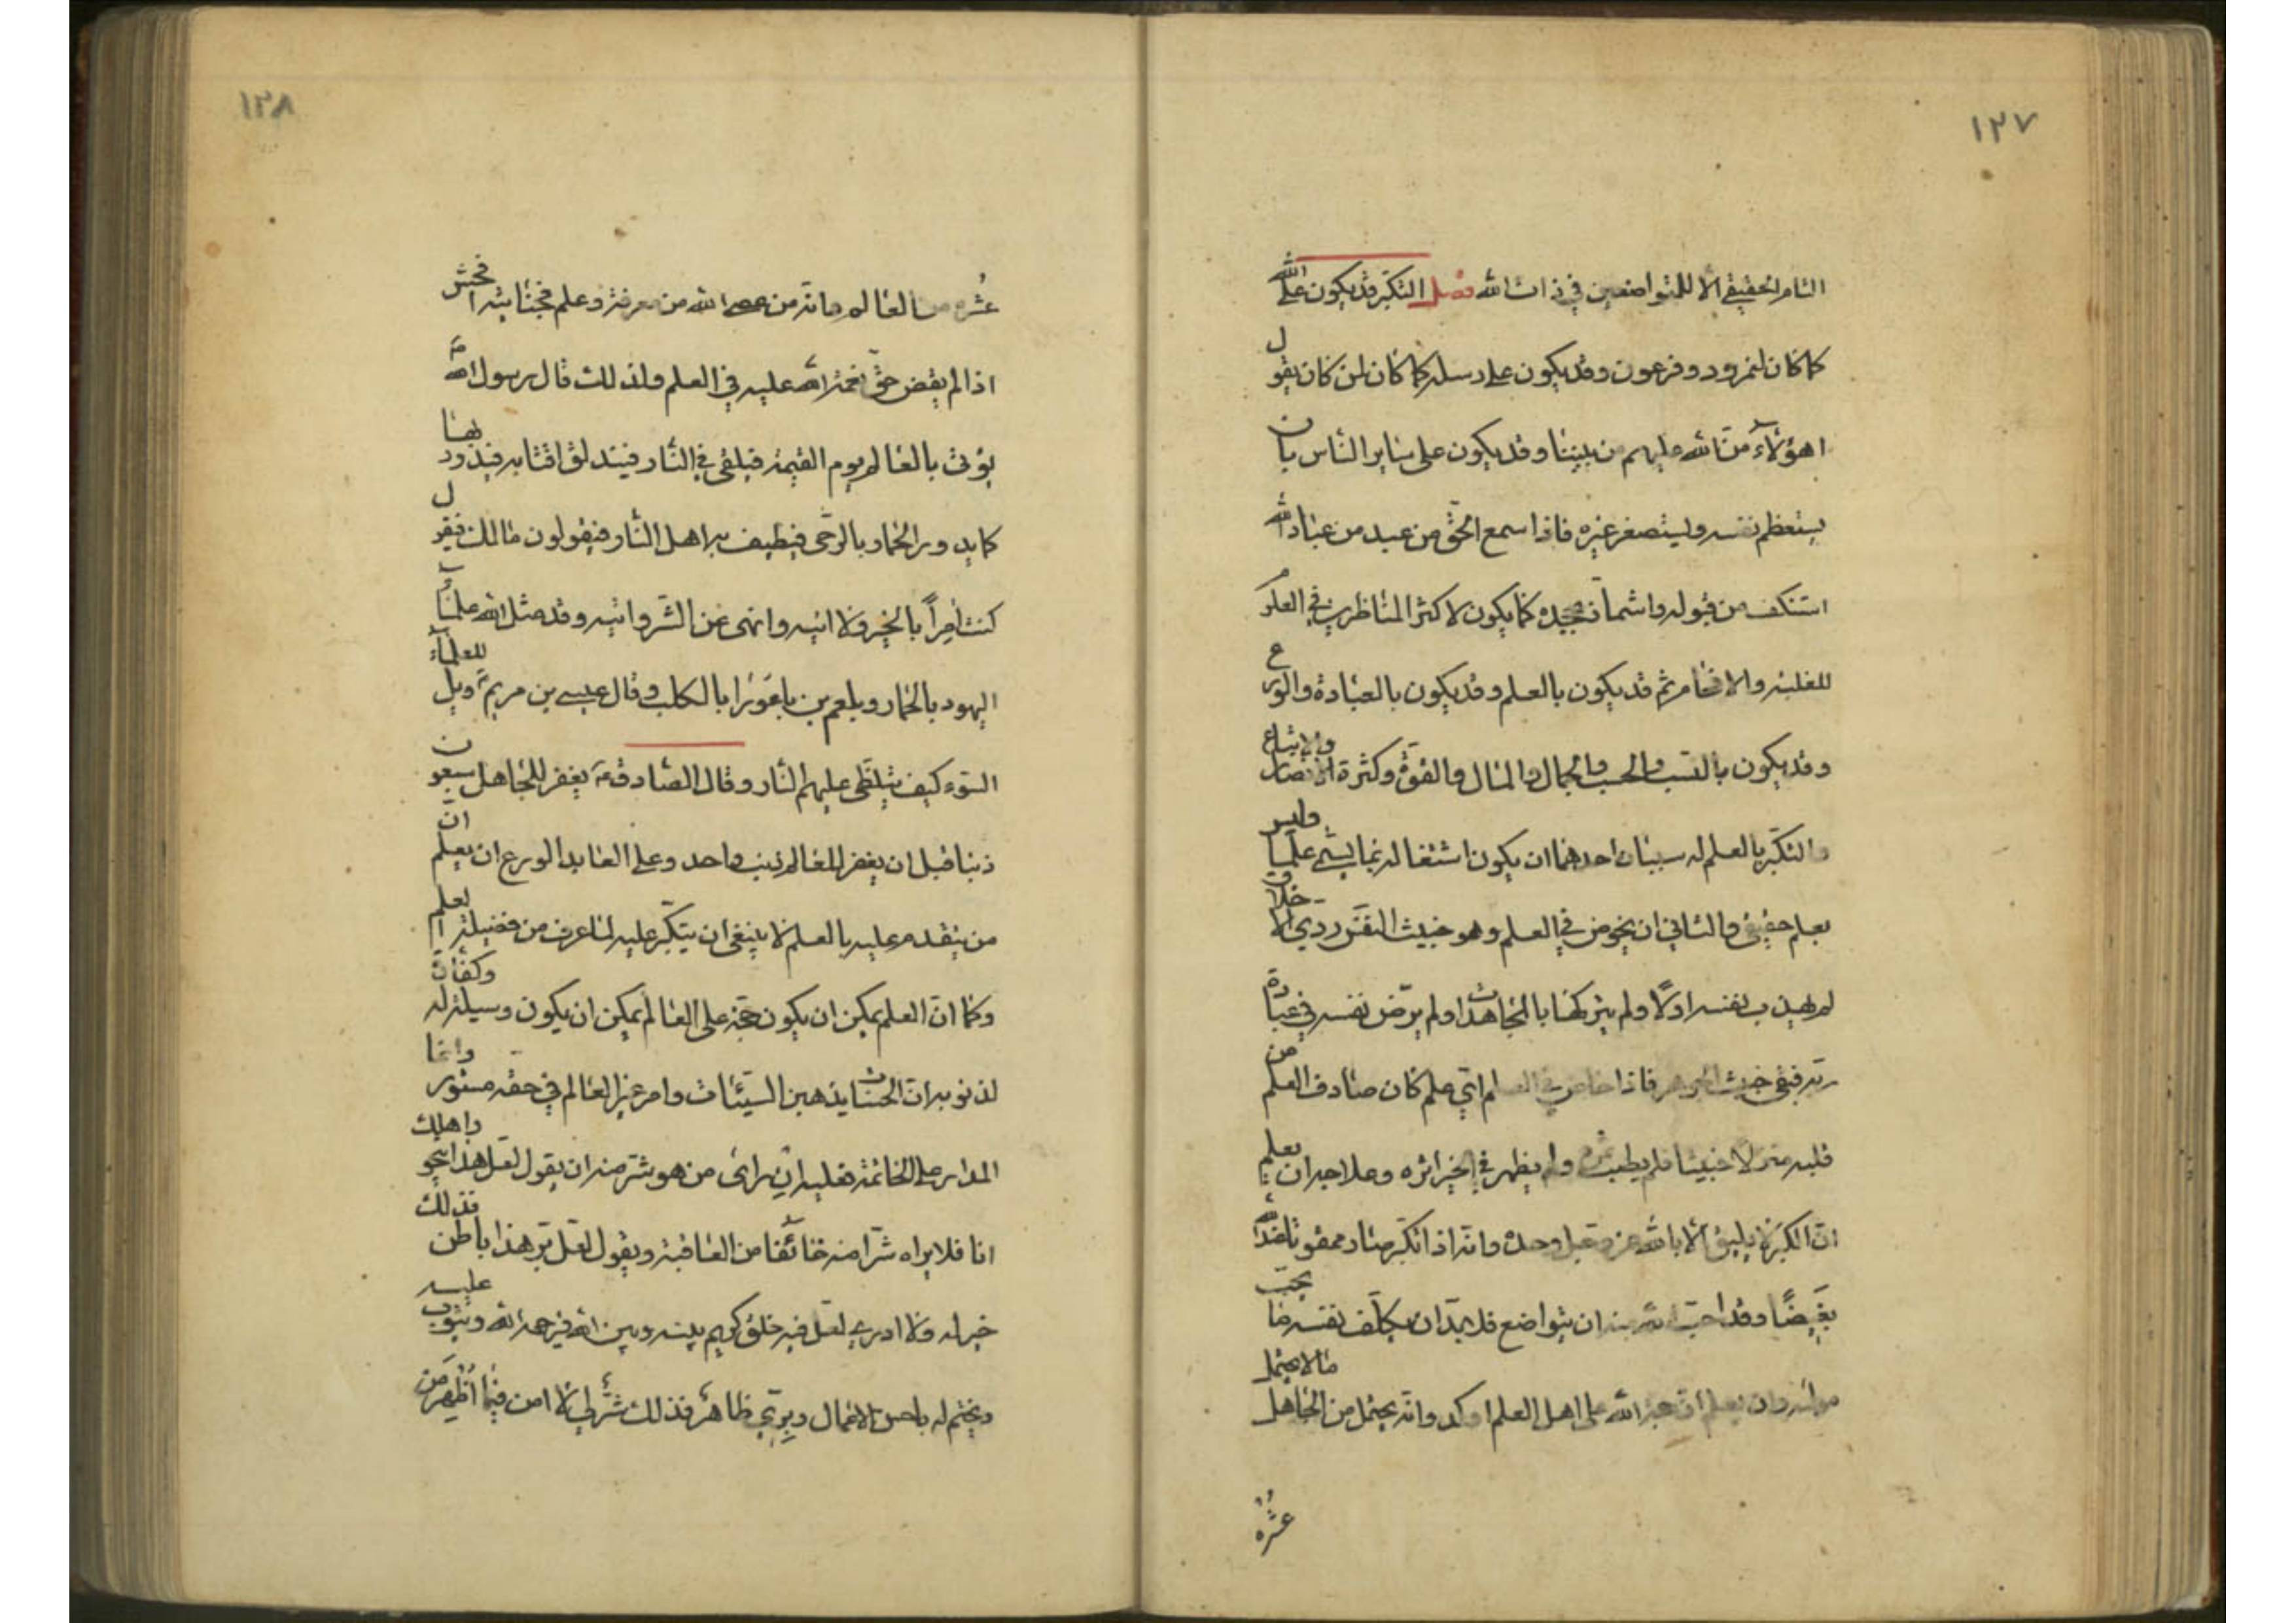 ١٢٧
التام الحقيقي الا للمتواضعين في ذات الله فصل التكبر قد يكون على الله
كما كان لنمرود وفرعون وقد يكون على رسله كما كان لمن كان يقول
اهؤلاء من الله عليهم من بيننا وقد يكون على ساير الناس بان
يستعظم نفسه ويستصغر غيره فاذا سمع الحق من عبد من عباد الله
استنكف من قبوله واشمأز بجحده كما يكون لاكثر المناظرين في العلم
للغلبة والافحام ثم قد يكون بالعلم وقد يكون بالعبادة والورع
وقد يكون بالنسب والحسب والجمال والمال والقوة وكثرة الانصار والاتباع
والتكبر بالعلم له سببان احدهما ان يكون اشتغاله بما يسمى علما وليس
بعلم حقيقي والثاني ان يخوض في العلم وهو خبيث النفس ردي الاخلاق
لم يهذب نفسه اولا ولم يزكها بالمجاهدات ولم يرض نفسه في عبادة
ربه فبقي خبيث الجوهر فاذا خاض في العلم اي علم كان صادف العلم من
قلبه منزلا خبيثا فلم يطب ثمره ولم يظهر في الخير اثره وعلاجه ان يعلم
ان الكبر لا يليق الا بالله عز وجل وحده وانه اذا تكبر صار ممقوتا عند الله
بغيضا وقد احب الله منه ان يتواضع فلابد ان يكلف نفسه ما يحب
مولاه وان يعلم ان حجة الله على اهل العلم اوكد وانه يحتمل من الجاهل ما لا يحتمل
عشره
١٢٨
عشره من العالم وانه من عصى الله من معرفة وعلم فجنايته افحش
اذا لم يقض حق نعمة الله عليه في العلم ولذلك قال رسول الله ص
يؤتى بالعالم يوم القيمة فيلقى في النار فيندلق اقتابه فيدور بها
كما يدور الحمار بالرحى فيطيف به اهل النار فيقولون مالك فيقول
كنت آمرا بالخير ولا اتيه وانهى عن الشر واتيه وقد مثل الله علماء
اليهود بالحمار وبلعم بن باعورا بالكلب وقال عيسى بن مريم ع ويل للعلماء
السوء كيف تتلظى عليهم النار وقال الصادق ع يغفر للجاهل سبعون
ذنبا قبل ان يغفر للعالم ذنب واحد وعلى العابد الورع ان يعلم ان
من يتقدم عليه بالعلم لا ينبغي ان يتكبر عليه لما عرف من فضيلة العلم
وكما ان العلم يمكن ان يكون حجة على العالم يمكن ان يكون وسيلة له وكفارة
لذنوبه ان الحسنات يذهبن السيئات وامر غير العالم في حقه مستور وانما
المدار على الخاتمة فعليه ان رأى من هو شر منه ان يقول لعل هذا ينجو واهلك
انا فلا يراه شرا منه خائفا من العاقبة ويقول لعل بر هذا باطن فذلك
خير له ولا ادري لعل فيه خلق كريم بينه وبين الله فيرحمه الله ويتوب عليه
ويختم له باحسن الاعمال وبري ظاهر فذلك شر لي لا امن فيما اظهر من